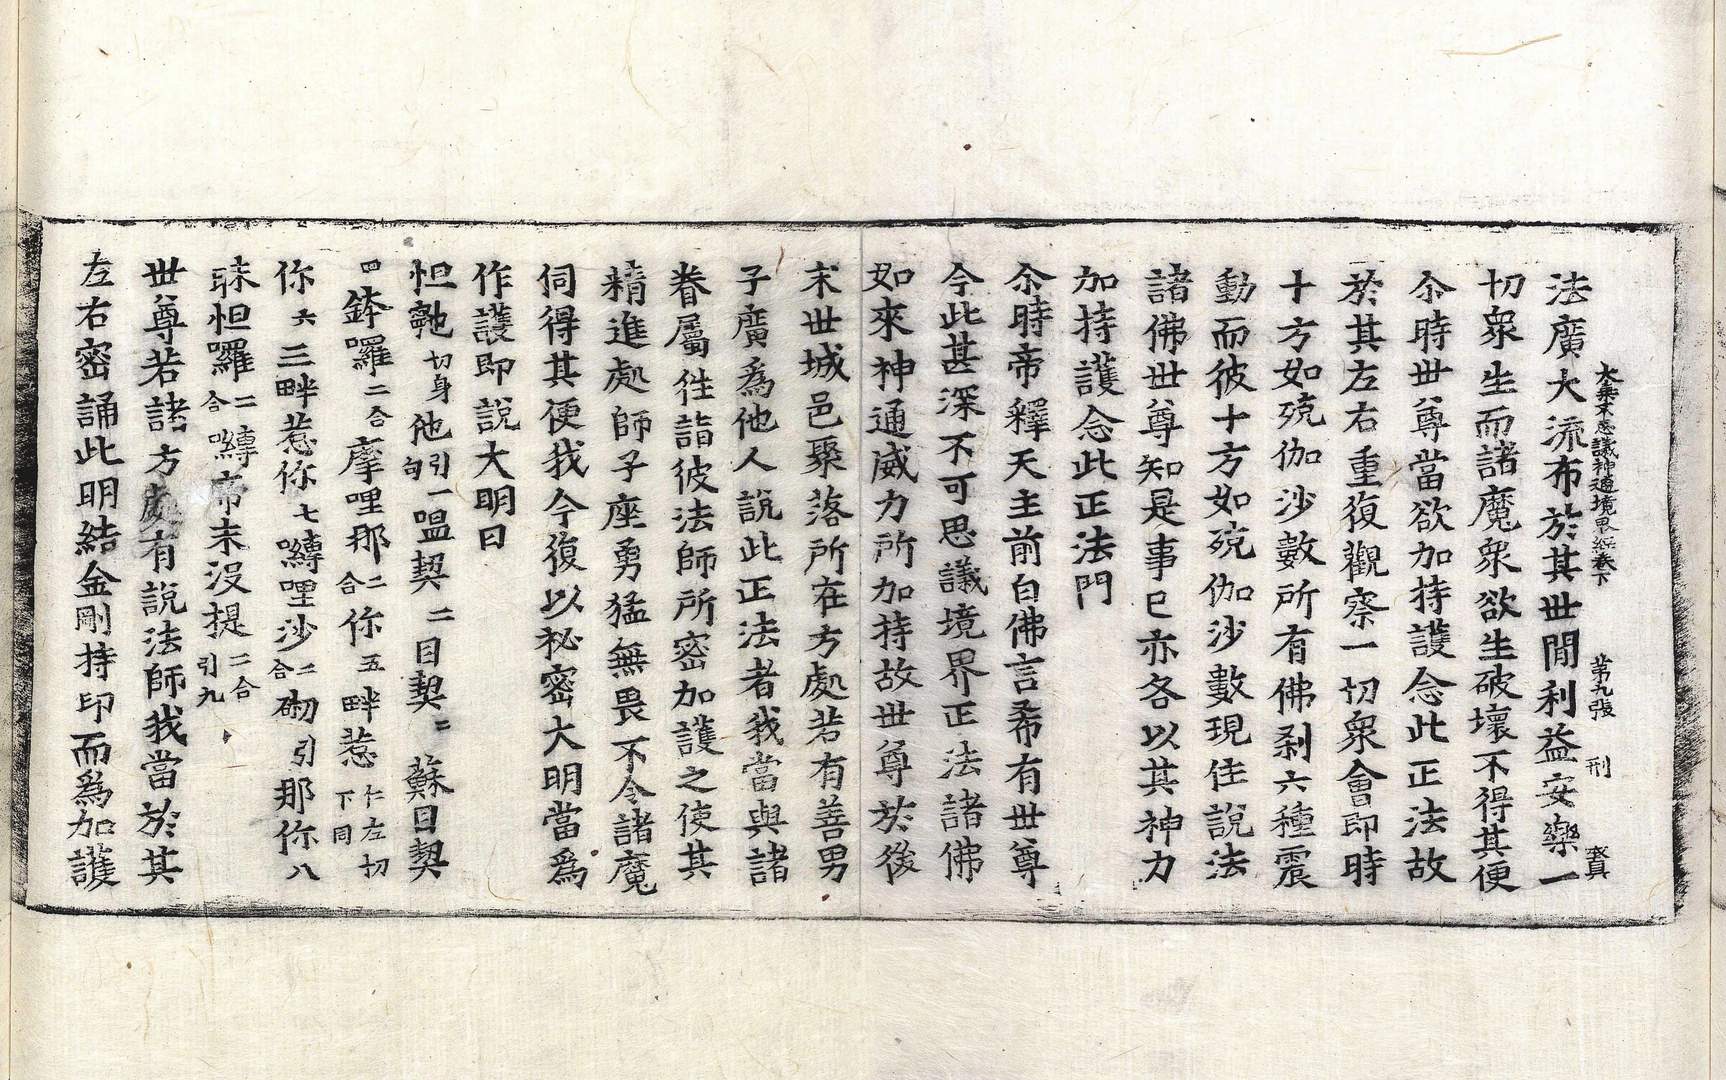 大乘不思議神通境界經卷下 第九張 刑
法廣大流布於其世間利益安樂一
切衆生而諸魔衆欲生破壞不得其便
尒時世尊當欲加持護念此正法故
於其左右重復觀察一切衆會即時
十方如殑伽沙數所有佛刹六種震
動而彼十方如殑伽沙數現住說法
諸佛世尊知是事已亦各以其神力
加持護念此正法門
尒時帝釋天主前白佛言希有世尊
今此甚深不可思議境界正法諸佛
如來神通威力所加持故世尊於後
末世城邑聚落所在方處若有善男
子廣爲他人說此正法者我當與諸
眷屬徃詣彼法師所密加護之使其
精進處師子座勇猛無畏不令諸魔
伺得其便我今復以祕密大明當爲
作護即說大明曰
怛𭉨切身他引句一嗢契二目契三蘇目契
四鉢囉二合摩哩那二合你五畔惹仁左切下同
你六三畔惹你七嚩哩沙二合砌引那你八
昧怛囉二合嚩帝末没提二合引九
世尊若諸方處有說法師我當於其
左右密誦此明結金剛持印而爲加護